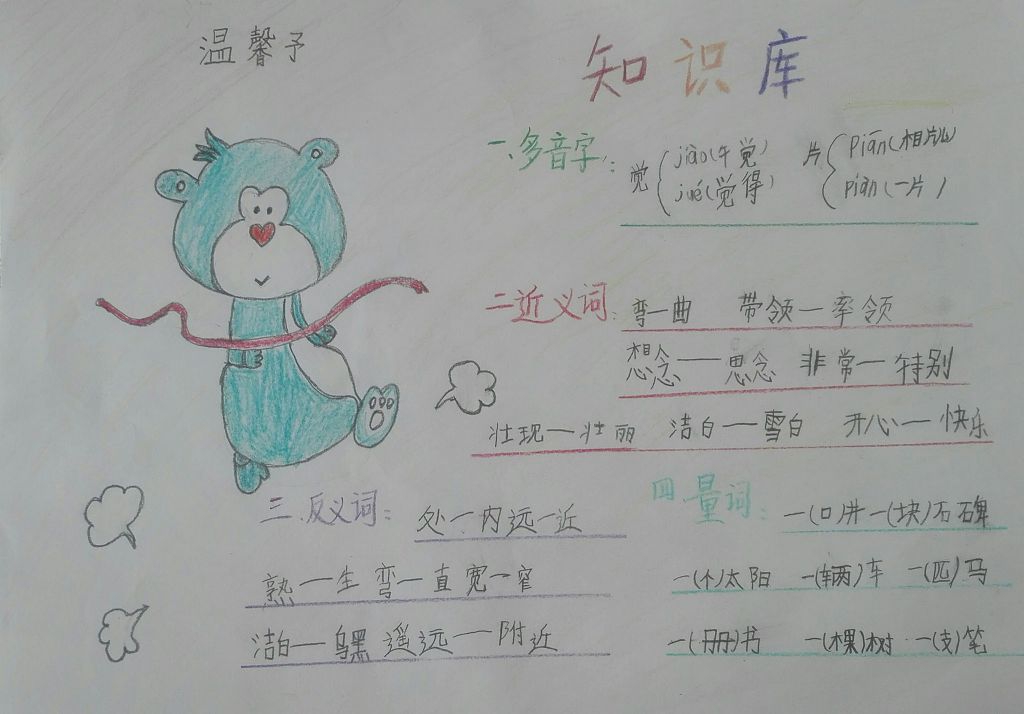 温馨予
知识库
一、多音字: 觉 jiào(午觉) jué(觉得) 片 piān(相片儿) piàn(一片)
二近义词: 弯一曲 带领一率领
想念——思念 非常一特别
壮现一壮丽 洁白——雪白 开心一快乐
三、反义词: 处一内 远一近
熟一生 弯一直 宽一窄
洁白——乌黑 遥远——附近
四.量词: 一(口)井 一(块)石碑
一(个)太阳 一(辆)车 一(匹)马
一(册)书 一(棵)树 一(支)笔